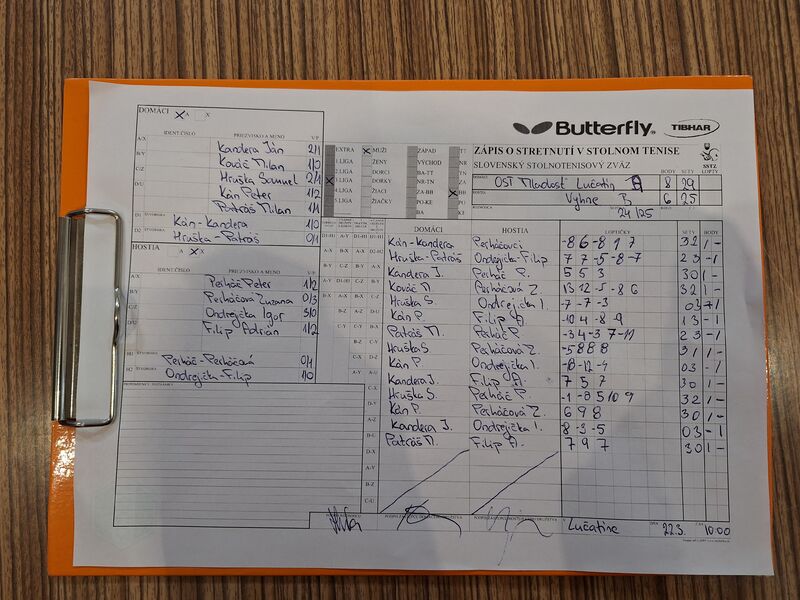 Butterfly TIBHAR
ZÁPIS O STRETNUTÍ V STOLNOM TENISE
SLOVENSKÝ STOLNOTENISOVÝ ZVÄZ
SSTZ
BODY SETY LOPTY
OST Mladosť Lučatín 8 29
Vyhne B 6 25
24/25
DOMÁCI X A X
IDENT.ČÍSLO PRIEZVISKO A MENO V/P
A/X Kandera Ján 2/1
B/Y Kováč Milan 1/0
C/Z Hruška Samuel 2/1
D/U Kán Peter 1/2
Patráš Milan 1/1
D1 Kán-Kandera 1/0
D2 Hruška-Patráš 0/1
HOSTIA A X
IDENT.ČÍSLO PRIEZVISKO A MENO V/P
Perháč Peter 1/2
Perháčová Zuzana 0/3
Ondrejička Igor 3/0
Filip Adrián 1/2
Perháč-Perháčová 0/1
Ondrejička-Filip 1/0
EXTRA X MUŽI ZÁPAD TT
1.LIGA ŽENY VÝCHOD NR
2.LIGA DORCI BA-TT TN
3.LIGA DORKY NR-TN ZA
4.LIGA ŽIACI ZA-BB X BB
5.LIGA ŽIAČKY PO-KE PO
BA KE
DOMÁCI HOSTIA LOPTIČKY SETY BODY
Kán-Kandera Perháčovci -8 6 -8 1 7 3 2 1 -
Hruška-Patráš Ondrejička-Filip 7 7 -5 -8 -7 2 3 - 1
Kandera J. Perháč P. 5 5 3 3 0 1 -
Kováč M. Perháčová Z. 13 12 -5 -8 6 3 2 1 -
Hruška S. Ondrejička I. -7 -7 -3 0 3 - 1
Kán P. Filip A. -10 4 -8 -9 1 3 - 1
Patráš M. Perháč P. -3 4 -3 7 -10 2 3 - 1
Hruška S. Perháčová Z. -5 8 8 8 3 1 1 -
Kán P. Ondrejička I. -8 -12 -4 0 3 - 1
Kandera J. Filip A. 7 5 7 3 0 1 -
Hruška S. Perháč P. -1 -8 5 10 9 3 2 1 -
Kán P. Perháčová Z. 6 9 8 3 0 1 -
Kandera J. Ondrejička I. -8 -3 -5 0 3 - 1
Patráš M. Filip A. 7 9 7 3 0 1 -
C-X
D-Y
A-Z
D-U
D-X
A-Y
B-Z
C-U
V Lučatíne DŇA 22.3. ČAS 10:00